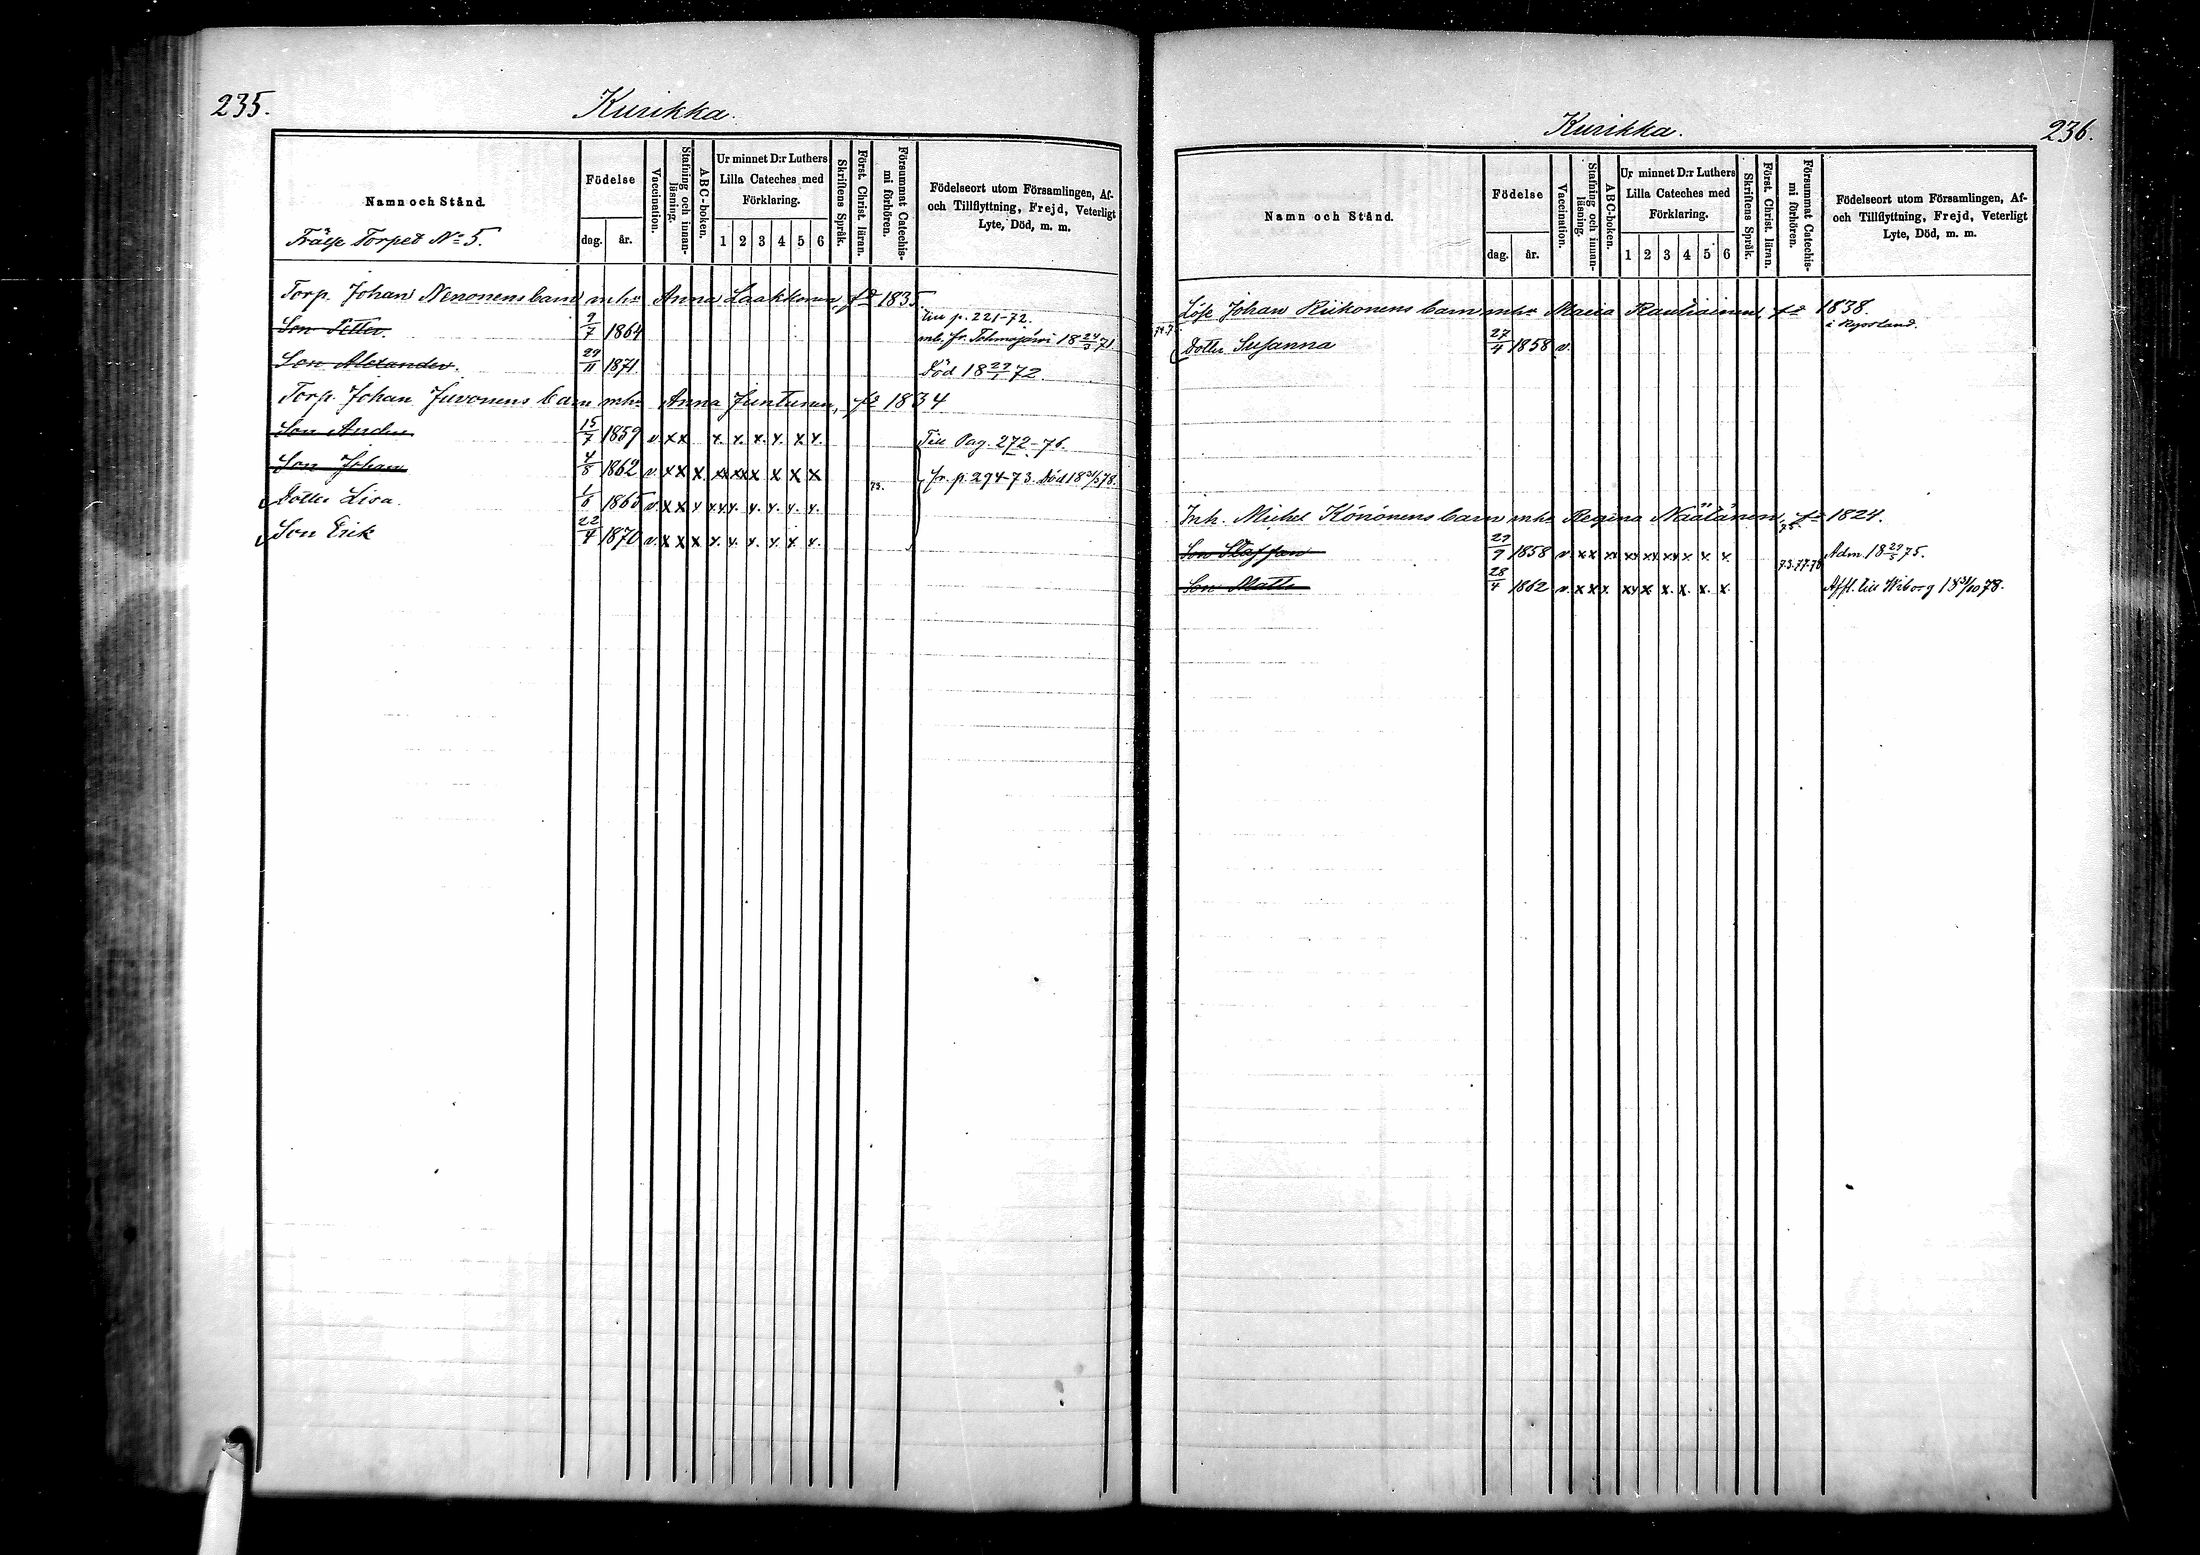 235.
Kurikka.
Namn och Stånd.
Födelse
dag.
år.
Vaccination.
Stafning och innan-läsning.
ABC-boken.
Ur minnet D:r Luthers
Lilla Cateches med
Förklaring.
1 2 3 4 5 6
Skriftens Språk.
Först. Christ. läran.
Försummat Catechis-
mi förhören.
Födelseort utom Församlingen, Af-
och Tillflyttning, Frejd, Veterligt
Lyte, Död, m. m.
Frälse Torpet No 5.
Torp. Johan Nenonens barn mhu Anna Laakkonen, fd 1835.
Son Petter. 9/7 1864 till p. 221-72. mb. fr. Tohmajärvi 18 24/3 71
Son Alexander. 29/11 1871 Död 18 29/1 72.
Torp. Johan Juvonens barn mhu Anna Juntunen, fd 1834
Son Anders 15/7 1859 v. x x x. x. x. x. x x. Till Pag. 272-76.
Son Johan 4/8 1862 v. x x x xx xx x x x x 73. fr. p. 294-73. Död 18 31/5 78.
Dotter Lisa. 1/6 1865 v. x x x x x x. x. x. x. x.
Son Erik 22/4 1870 v. x x x x. x. x. x. x. x.
Kurikka.
236.
Namn och Stånd.
Födelse
dag.
år.
Vaccination.
Stafning och innan-läsning.
ABC-boken.
Ur minnet D:r Luthers
Lilla Cateches med
Förklaring.
1 2 3 4 5 6
Skriftens Språk.
Först. Christ. läran.
Försummat Catechis-
mi förhören.
Födelseort utom Församlingen, Af-
och Tillflyttning, Frejd, Veterligt
Lyte, Död, m. m.
Löse Johan Riikonens barn mhu Maria Rautiainen, fd 1838.
Dotter Susanna 27/4 1858 v. i Ryssland.
Inh. Michel Könönens barn mhu Regina Näätänen, fd 1824.
Son Staffan 29/9 1858 v. x x xx xx xx x x x x 75 Adm. 18 29/5 75.
Son Matts 28/4 1862 v. x x x. xx x. x. x. x. x. 73.77.78 Affl. till Wiborg 18 31/10 78.